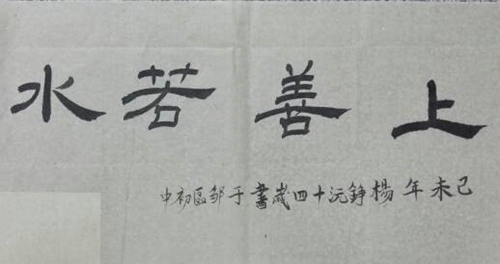 上善若水
己未年楊錚沅十四歲書于邹區初中